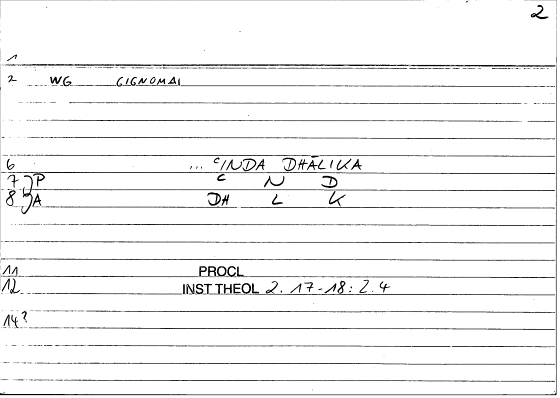 2
1
2 WG GIGNOMAI
6 ... ʿINDA DHĀLIKA
7 } P ʿ N D
8 } A DH L K
11 PROCL
12 INST THEOL 2. 17-18: 2.4
14?